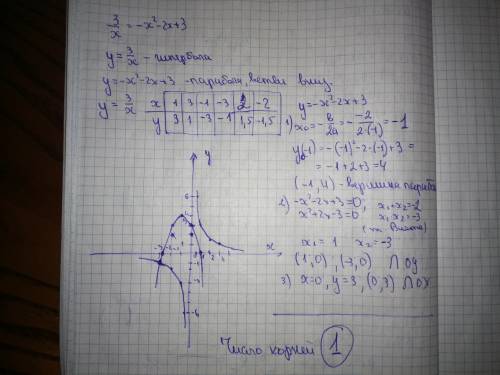 3/x = -x²-2x+3
y = 3/x - гипербола
y = -x²-2x+3 - парабола, ветви вниз.
y = 3/x
x | 1 | 3 | -1 | -3 | 2 | -2
y | 3 | 1 | -3 | -1 | 1,5 | -1,5
y = -x²-2x+3
1) x₀ = -в/2a = - -2/2·(-1) = -1
y(-1) = -(-1)²-2·(-1)+3 =
= -1+2+3=4
(-1,4) - вершина параб
2) -x²-2x+3=0; x₁+x₂=-2
x²+2x-3=0 x₁x₂=-3
(т Виета)
x₁ = 1 x₂ = -3
(1,0), (-3,0) ∩ ОУ
3) x=0, y=3, (0,3) ∩ ОХ
y
x
Число корней 1